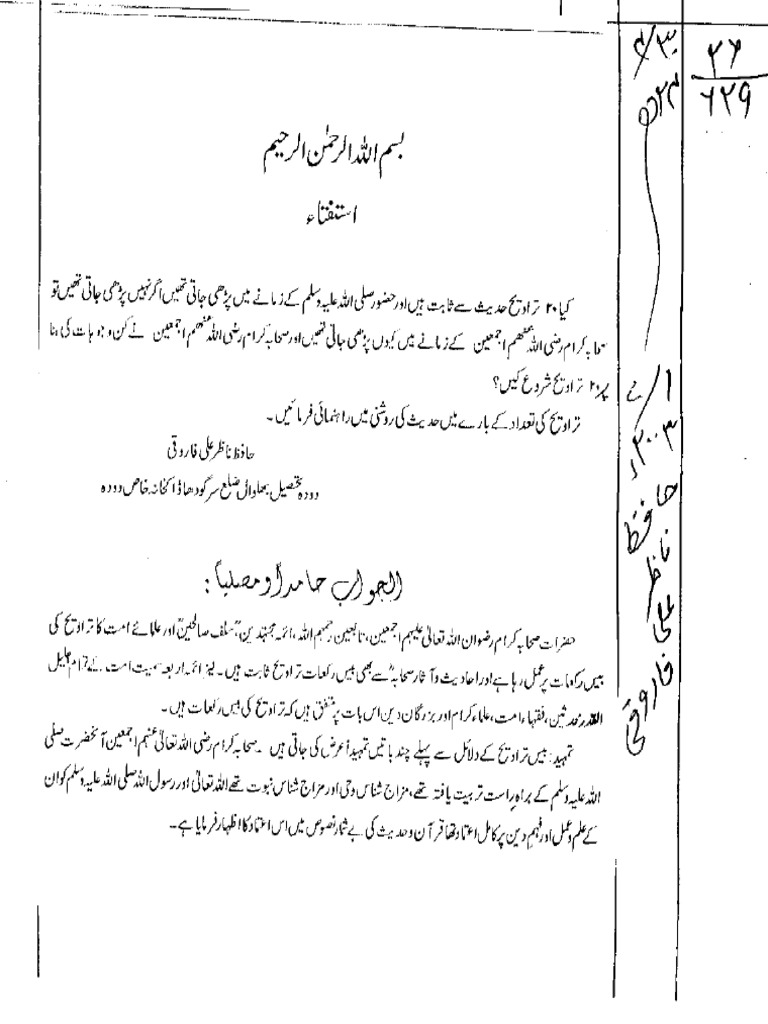 بسم اللہ الرحمٰن الرحیم
استفتاء
کیا ۲۰ تراویح حدیث سے ثابت ہیں اور حضور صلی اللہ علیہ وسلم کے زمانے میں پڑھی جاتی تھیں اگر نہیں پڑھی جاتی تھیں تو
صحابہ کرام رضی اللہ عنھم اجمعین کے زمانے میں کیوں پڑھی جاتی تھیں اور صحابہ کرام رضی اللہ عنھم اجمعین نے کن وجوہات کی بنا
پر ۲۰ تراویح شروع کیں؟
تراویح کی تعداد کے بارے میں حدیث کی روشنی میں راہنمائی فرمائیں۔
حافظ ناظر علی فاروقی
دودہ تحصیل بھلوال ضلع سرگودھا ڈاکخانہ خاص دودہ
الجواب حامداً ومصلیاً:
حضرات صحابہ کرام رضوان اللہ تعالیٰ علیہم اجمعین، تابعین رحمہم اللہ، ائمہ مجتہدین، سلف صالحین اور علمائے امت کا تراویح کی
بیس رکعات پر عمل رہا ہے اور احادیث و آثار صحابہ سے بھی بیس رکعات تراویح ثابت ہیں۔ نیز ائمہ اربعہ سمیت امت کے تمام جلیل
القدر محدثین، فقہاء امت، علماء کرام اور بزرگان دین اس بات پر متفق ہیں کہ تراویح کی بیس رکعات ہیں۔
تمہید: بیس تراویح کے دلائل سے پہلے چند باتیں تمہیداً عرض کی جاتی ہیں۔ صحابہ کرام رضی اللہ تعالیٰ عنہم اجمعین آنحضرت صلی
اللہ علیہ وسلم کے براہ راست تربیت یافتہ تھے، مزاج شناس وحی اور مزاج شناس نبوت تھے اللہ تعالیٰ اور رسول اللہ صلی اللہ علیہ وسلم کو ان
کے علم و عمل اور فہم دین پر کامل اعتماد تھا قرآن و حدیث کی بے شمار نصوص میں اس اعتماد کا اظہار فرمایا ہے۔
۲۶
۶۲۹
حافظ ناظر علی فاروقی